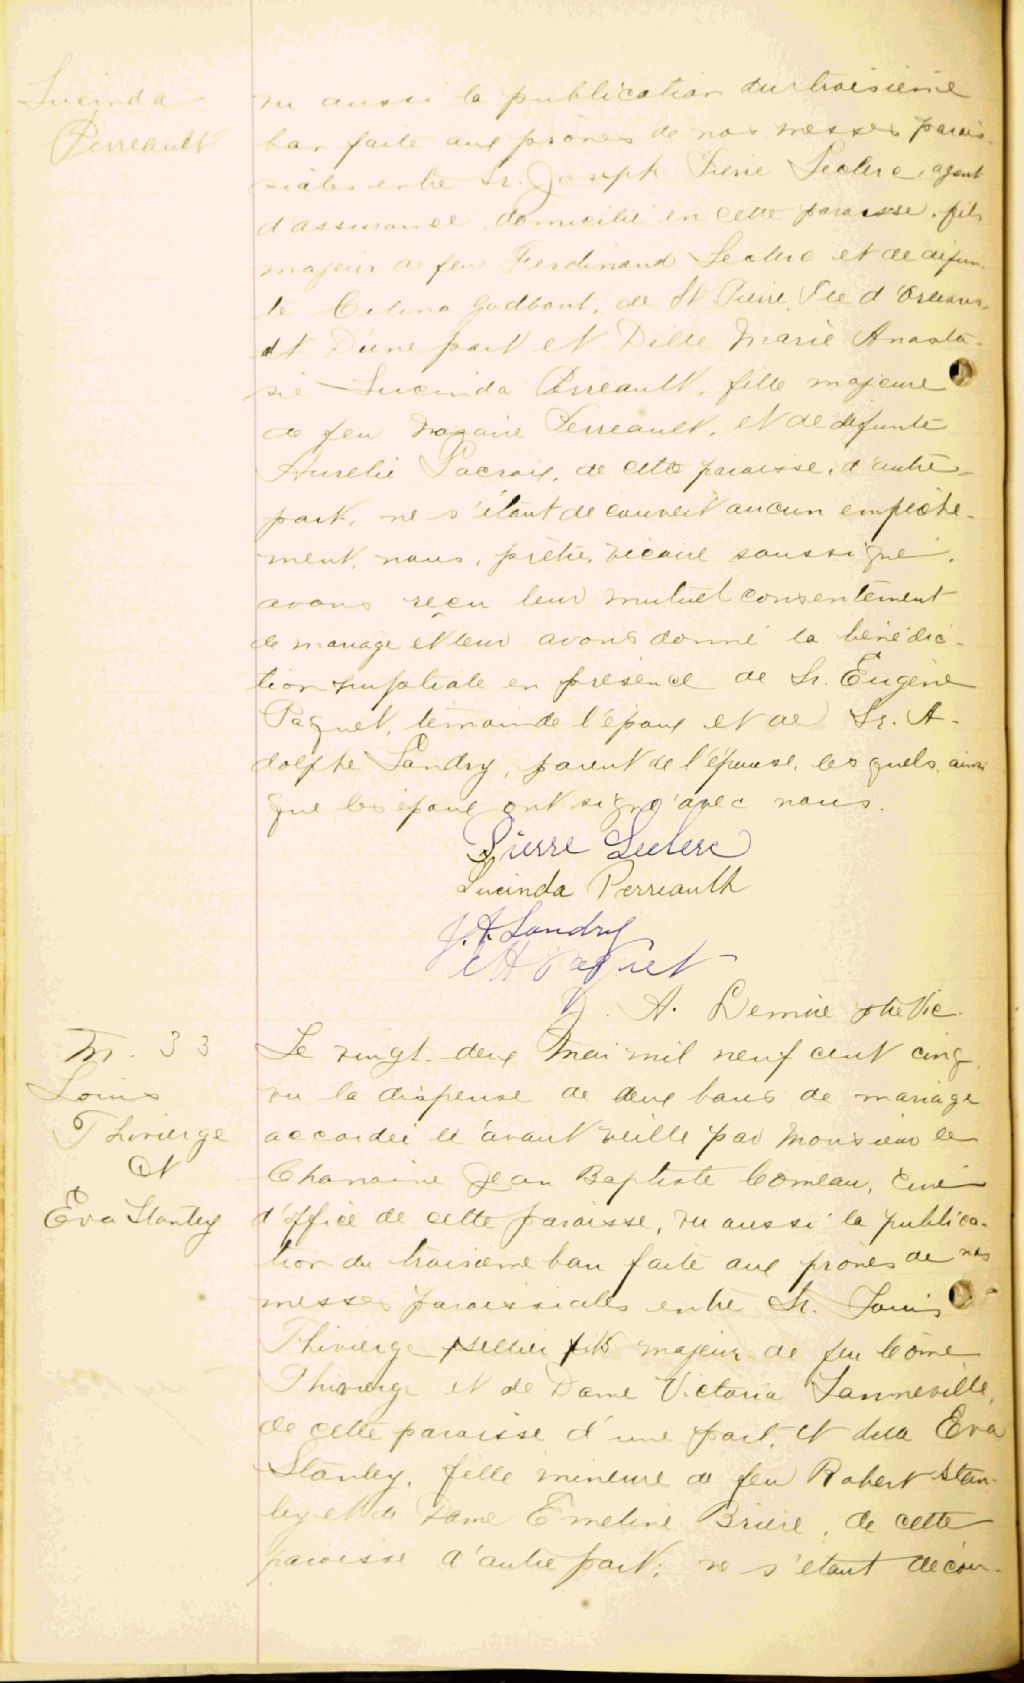 Lucinda
Perreault
vu aussi la publication du troisième
ban faite aux prônes de nos messes parois-
siales entre Sr. Joseph Pierre Leclerc, agent
d'assurance domicilié en cette paroisse, fils
majeur de feu Ferdinand Leclerc et de défun-
te Celina Godbout, de St Pierre, Ile d'Orléans,
d'une part et Delle Marie Anasta-
sie Lucinda Perreault, fille majeure
de feu Nazaire Perreault, et de défunte
Aurelie Lacroix, de cette paroisse, d'autre
part, ne s'étant découvert aucun empêche-
ment, nous, prêtre, vicaire soussigné,
avons reçu leur mutuel consentement
de mariage et leur avons donné la bénédic-
tion nuptiale en présence de Sr. Eugène
Paquet, témoin de l'époux et de Sr. A-
dolphe Landry, parent de l'épouse, lesquels, ainsi
que les époux ont signé avec nous.
Pierre Leclerc
Lucinda Perreault
J. A. Landry
Paquet
A. Lemire ptre Vic.
M. 33
Louis
Thivierge
et
Eva Stanley
Le vingt-deux Mai mil neuf cent cinq
vu la dispense de deux bans de mariage
accordée le avant veille par Monsieur le
Chanoine Jean Baptiste Comeau, Curé
d'office de cette paroisse, vu aussi la publica-
tion du troisième ban faite aux prônes de nos
messes paroissiales entre Sr. Louis
Thivierge, sellier fils majeur de feu Côme
Thivierge et de Dame Victoria Lanneville,
de cette paroisse d'une part, et Delle Eva
Stanley, fille mineure de feu Robert Stan-
ley et de Dame Emeline Brière, de cette
paroisse d'autre part; ne s'étant découv-